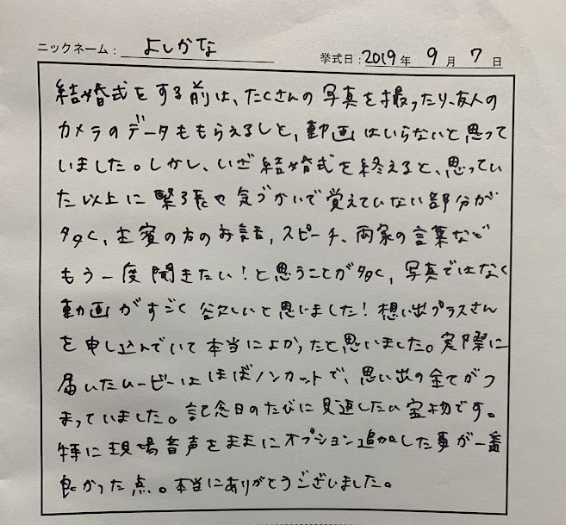 ニックネーム: よしかな 挙式日: 2019年 9月 7日
結婚式をする前は、たくさんの写真を撮ったり、友人の
カメラのデータももらえるしと、動画はいらないと思って
いました。しかし、いざ結婚式を終えると、思ってい
た以上に緊張や気づかいで覚えていない部分が
多く、主賓の方のお話、スピーチ、両家の言葉など
もう一度聞きたい!と思うことが多く、写真ではなく
動画がすごく欲しいと思いました!想い出プラスさん
を申し込んでいて本当によかったと思いました。実際に
届いたムービーはほぼノンカットで、思い出の全てがつ
まっていました。記念日のたびに見返したい宝物です。
特に現場音声をままにオプション追加した事が一番
良かった点。本当にありがとうございました。